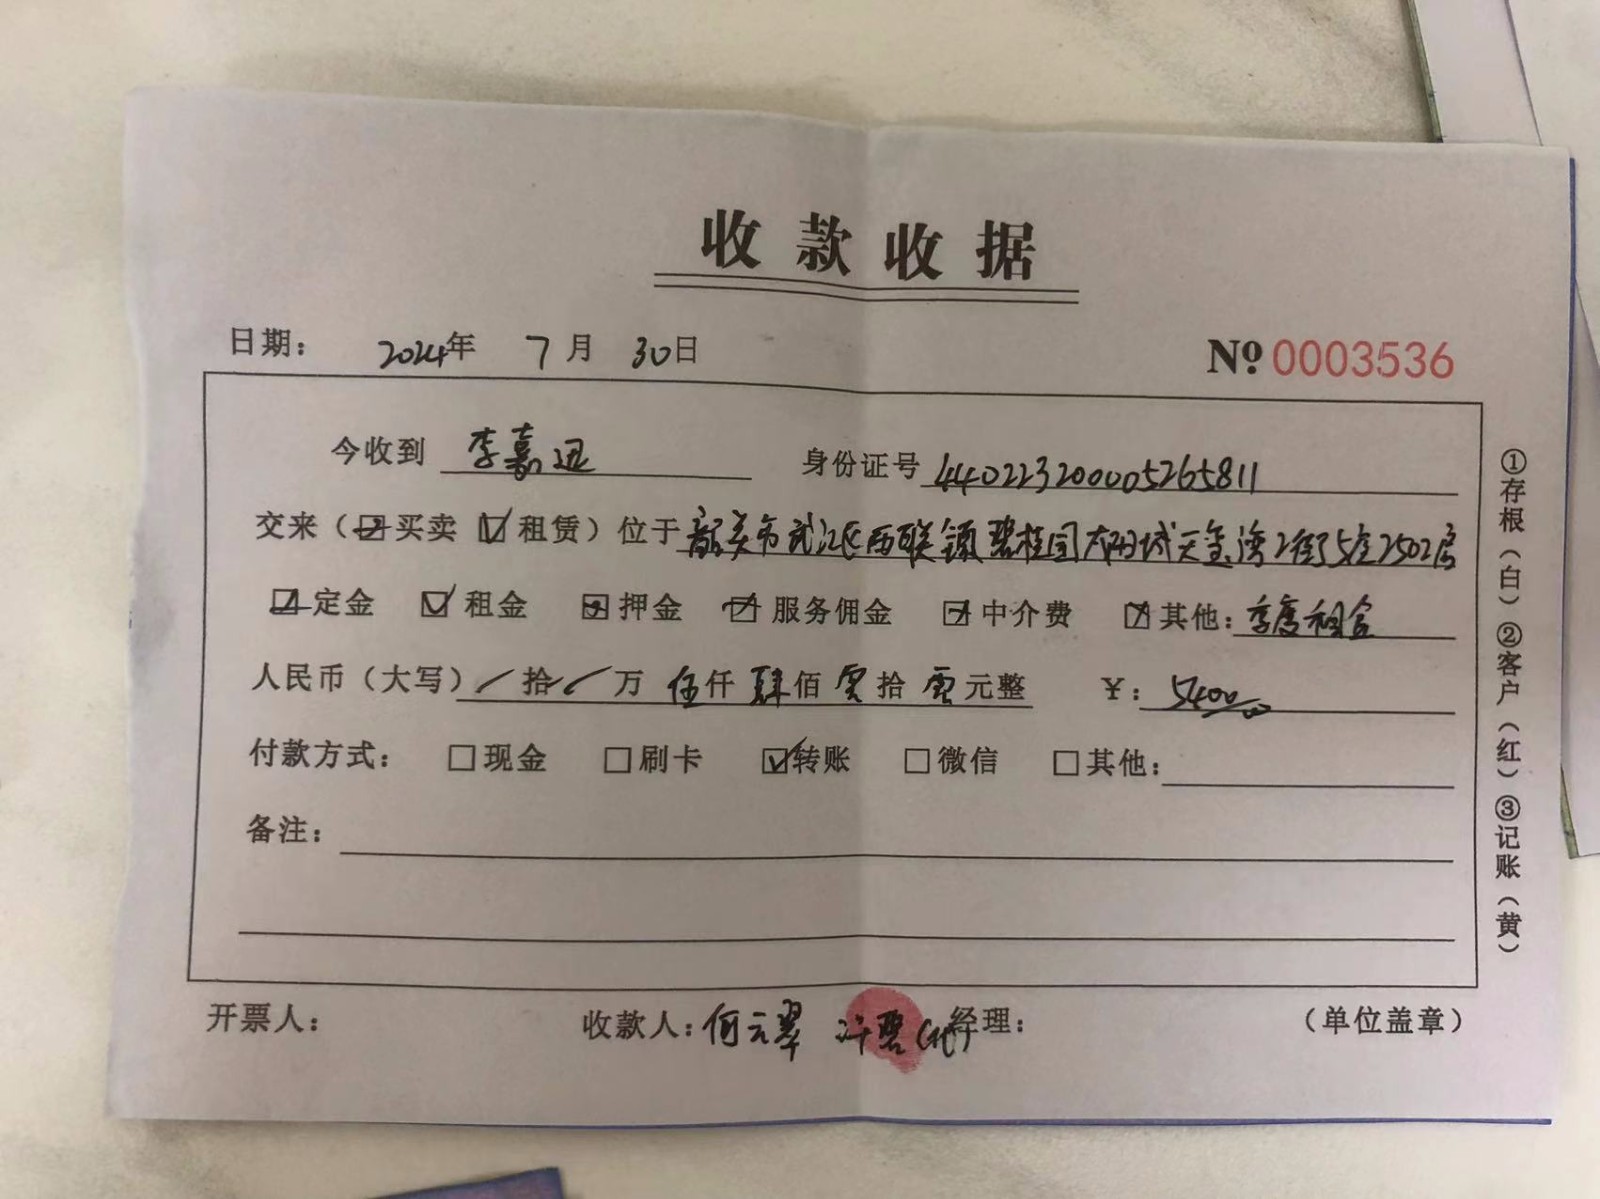 收款收据
日期： 2024年 7月 30日 № 0003536
今收到 李嘉迅 身份证号 440223200005265811
交来（☑买卖 ☑租赁）位于 韶关市武江区西联镇碧桂园太阳城天玺湾2街5座2502房
☑定金 ☑租金 ☑押金 ☑服务佣金 ☑中介费 ☑其他：季度租金
人民币（大写）／拾／万 伍仟 肆佰 零拾 零元整 ￥：5400.00
付款方式： □现金 □刷卡 ☑转账 □微信 □其他：
备注：
开票人： 收款人：何云翠 许碧（代） 经理： （单位盖章）
①存根（白）②客户（红）③记账（黄）